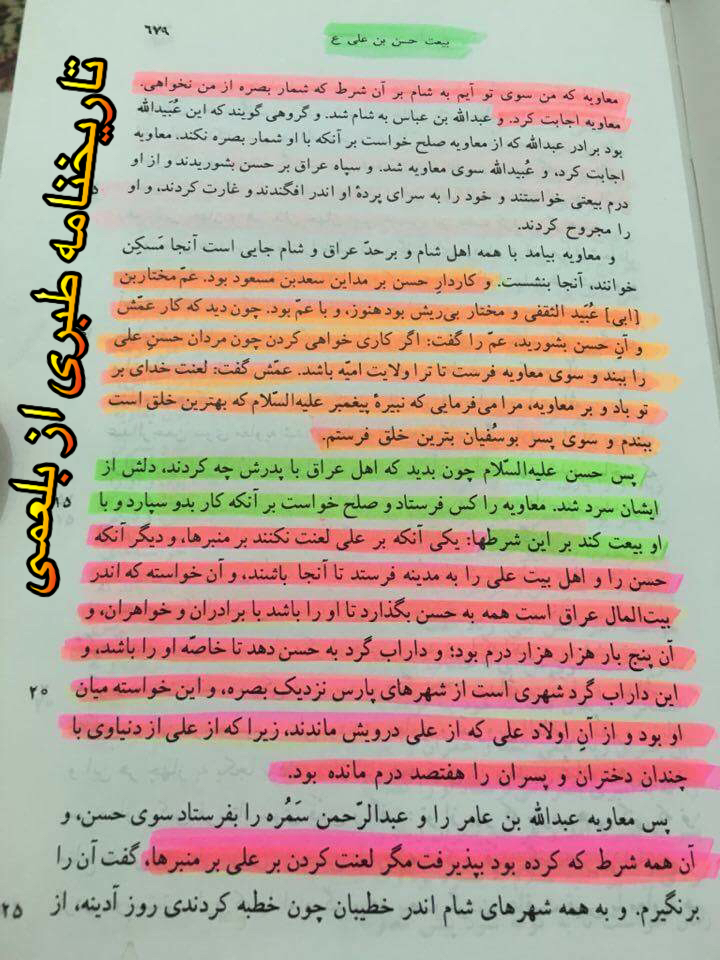 ۶۷۹
بیعت حسن بن علی ع
معاویه که من سوی تو آیم به شام بر آن شرط که شمار بصره از من نخواهی.
معاویه اجابت کرد. و عبدالله بن عباس به شام شد. و گروهی گویند که این عُبَیدالله
بود برادر عبدالله که از معاویه صلح خواست بر آنکه با او شمار بصره نکند. معاویه
اجابت کرد، و عُبیدالله سوی معاویه شد. و سپاه عراق بر حسن بشوریدند و از او
درم بیعتی خواستند و خود را به سرای پردهٔ او اندر افگندند و غارت کردند، و او
را مجروح کردند.
و معاویه بیامد با همه اهل شام و برحدّ عراق و شام جایی است آنجا مَسکِن
خوانند، آنجا بنشست. و کاردارِ حسن بر مداین سعدبن مسعود بود. عمّ مختاربن
[ابی] عُبَید الثقفی و مختار بی‌ریش بود هنوز، و با عمّ بود. چون دید که کار عمّش
و آنِ حسن بشورید، عمّ را گفت: اگر کاری خواهی کردن چون مردان حسنِ علی
را ببند و سوی معاویه فرست تا ترا ولایت امیّه باشد. عمّش گفت: لعنت خدای بر
تو باد و بر معاویه، مرا می‌فرمایی که نبیرهٔ پیغمبر علیه‌السّلام که بهترین خلق است
ببندم و سوی پسر بوسُفیان بترین خلق فرستم.
پس حسن علیه‌السّلام چون بدید که اهل عراق با پدرش چه کردند، دلش از
ایشان سرد شد. معاویه را کس فرستاد و صلح خواست بر آنکه کار بدو سپارد و با
۱۵
او بیعت کند بر این شرطها: یکی آنکه بر علی لعنت نکنند بر منبرها، و دیگر آنکه
حسن را و اهل بیت علی را به مدینه فرستد تا آنجا باشند، و آن خواسته که اندر
بیت‌المال عراق است همه به حسن بگذارد تا او را باشد با برادران و خواهران، و
آن پنج بار هزار هزار درم بود؛ و داراب گرد به حسن دهد تا خاصّه او را باشد، و
این داراب گرد شهری است از شهرهای پارس نزدیک بصره، و این خواسته میان
۲۰
او بود و از آنِ اولاد علی که از علی درویش ماندند، زیرا که از علی از دنیاوی با
چندان دختران و پسران را هفتصد درم مانده بود.
پس معاویه عبدالله بن عامر را و عبدالرّحمن سَمُره را بفرستاد سوی حسن، و
آن همه شرط که کرده بود بپذیرفت مگر لعنت کردن بر علی بر منبرها، گفت آن را
برنگیرم. و به همه شهرهای شام اندر خطیبان چون خطبه کردندی روز آدینه، از
۲۵
تاریخنامه طبری از بلعمی